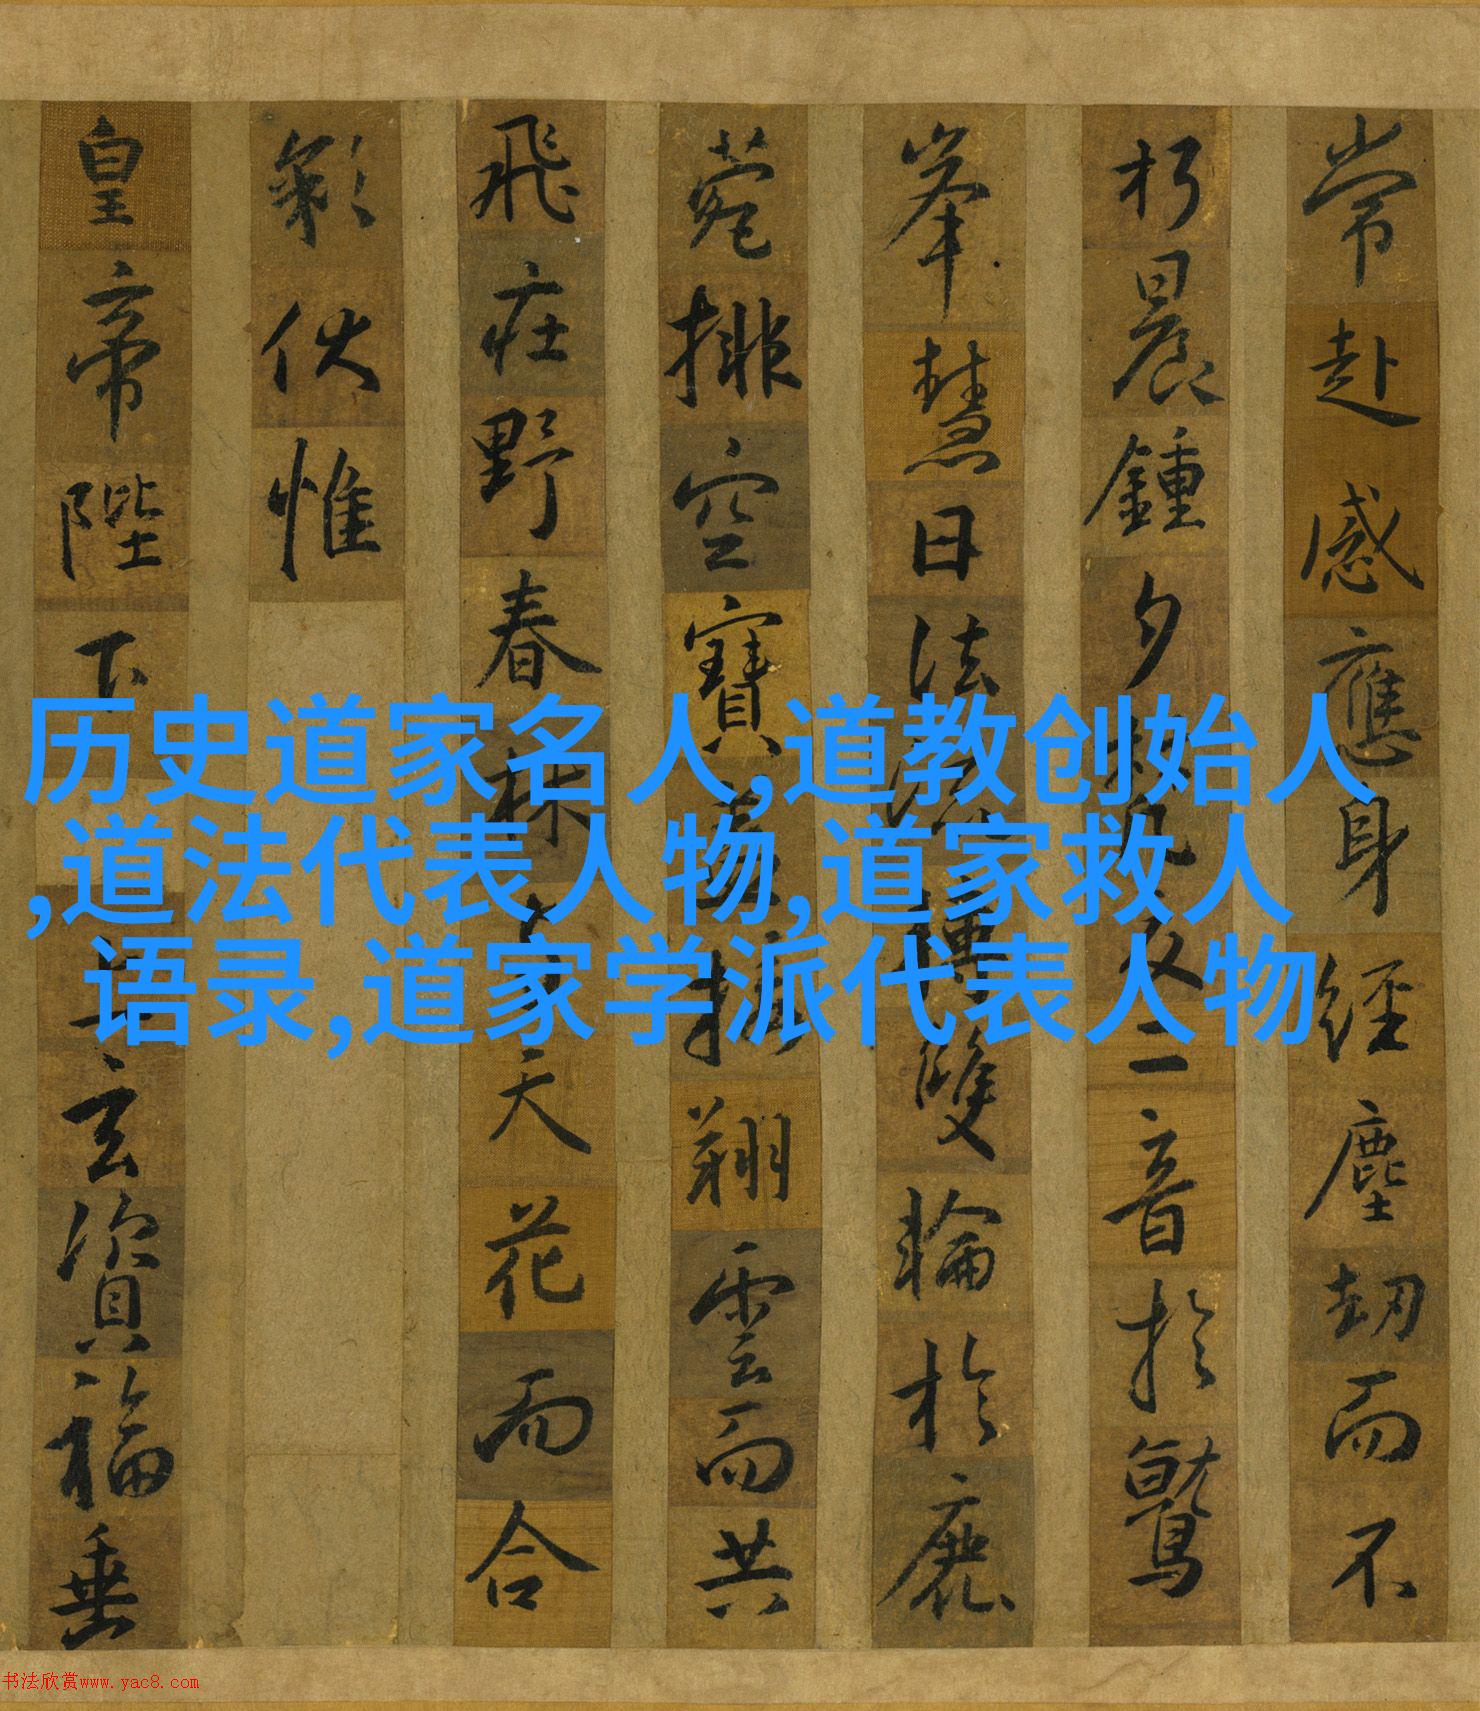 常赴感應身經塵劫而不
朽晨鍾夕梵交二音於鷲
峯慧日法流轉雙輪於鹿
菀排空寶蓋接翔雲而共
飛莊野春林與天花而合
彩伏惟
皇帝陛下上玄資福垂
历史道家名人,道教创始人
,道法代表人物,道家救人
语录,道家学派代表人物
书法欣赏www.yac8.com